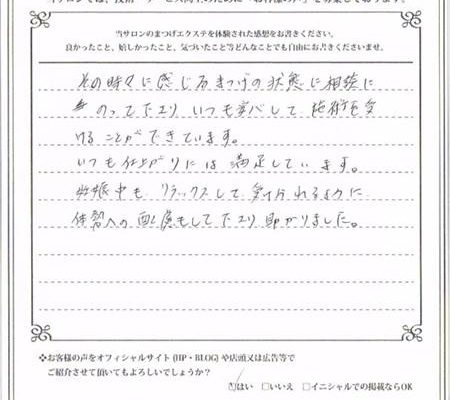 当サロンでは、技術・サービス向上のために「お客様の声」を募集しております。
当サロンのまつげエクステを体験された感想をお書きください。
良かったこと、嬉しかったこと、気づいたこと等どんなことでも自由にお書きくださいませ。
その時々に感じるまつげの状態に相談に
のって下さり いつも安心して 施術を受
けることができています。
いつも仕上がりには 満足しています。
妊娠中も リラックスして 受けられるように
体勢への配慮もして下さり 助かりました。
❖お客様の声をオフィシャルサイト(HP・BLOG)や店頭又は広告等で
ご紹介させて頂いてもよろしいでしょうか?
☑はい □いいえ □イニシャルでの掲載ならOK